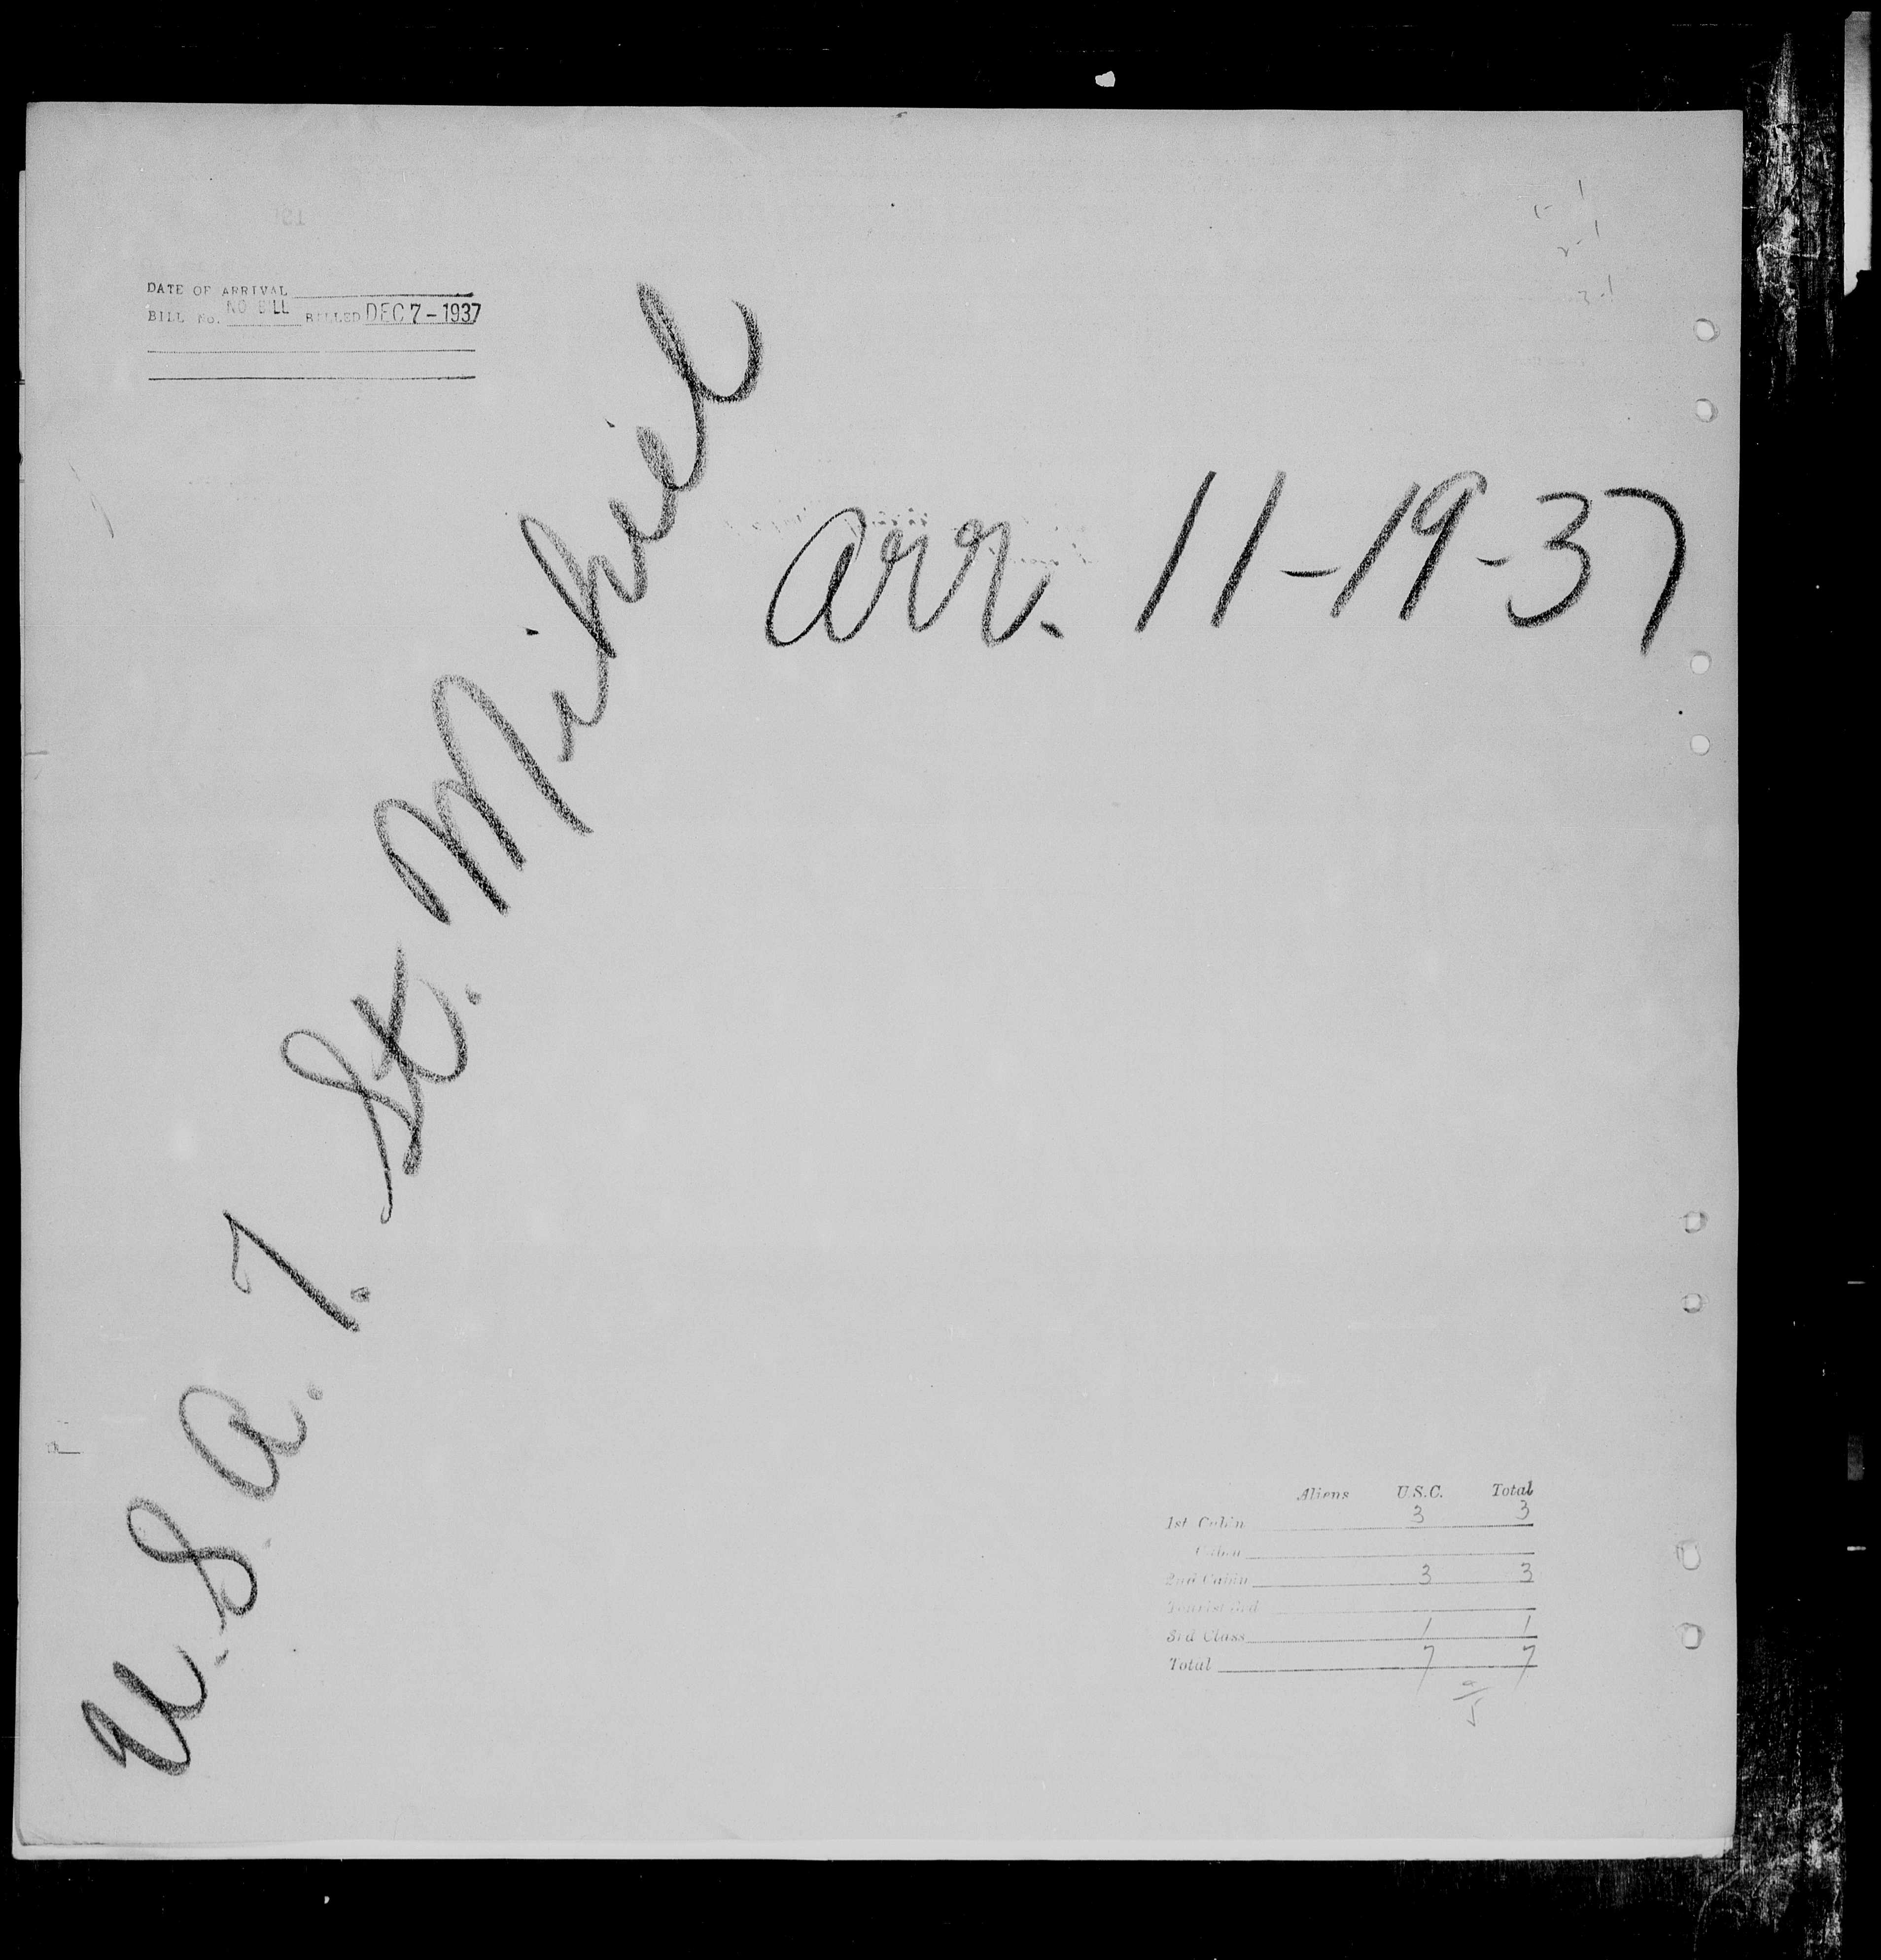 1- 1
2-1
3-1
DATE OF ARRIVAL
BILL No. NO BILL BILLED DEC 7 - 1937
arr. 11-19-37
U.S.A.T. St. Mihiel
Aliens U.S.C. Total
1st Cabin 3 3
Cabin
2nd Cabin 3 3
Tourist 3rd
3rd Class 1 1
Total 7 7